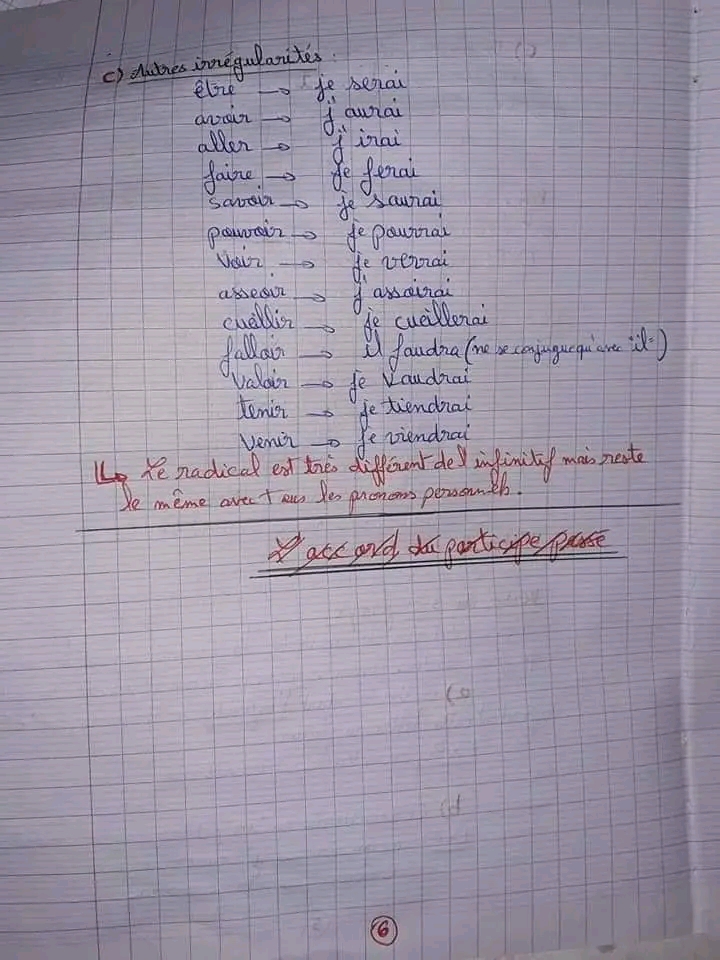 c) Autres irrégularités :
être → je serai
avoir → j'aurai
aller → j'irai
faire → je ferai
savoir → je saurai
pouvoir → je pourrai
Voir → je verrai
asseoir → j'assoirai
cueillir → je cueillerai
falloir → il faudra (ne se conjugue qu'avec "il")
Valoir → je Vaudrai
tenir → je tiendrai
Venir → je viendrai
↳ Le radical est très différent de l'infinitif mais reste
le même avec tous les pronoms personnels.
L'accord du participe passé
6